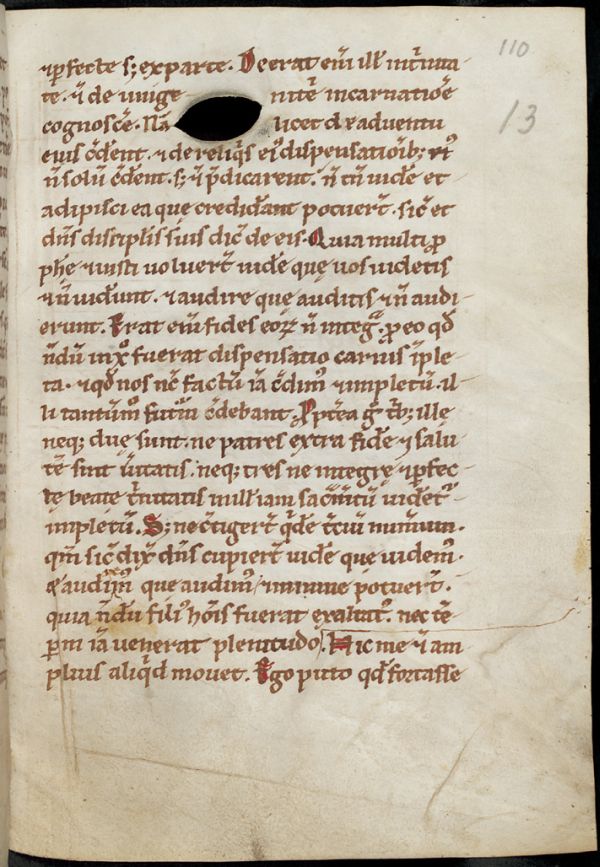 ⁊ꝑfecte s; ex parte. Deerat eni̅ ill' intʼnita
te. ⁊̅ de unige niti̅ incarnatio̅e
cognosce̅. Na̅ licet d eʼ aduentu
eius c̅dent. ⁊ de reliqͥs ei̕ dispensationib;
n̅ solu̅ c̅dent. s; ⁊̅ p̅dicarent. n̅ tn̅ uide̅ et
adipisci ea quę credidant potuer̅t. sic̅ et
dn̅s disciplis suis dic̅ de eis. Quia multi ꝓ
phę ⁊ iusti uoluer̅t uide̅ quę uos uidetis
⁊ n̅ uider̅unt. ⁊ audire quę auditis ⁊ n̅ audi
erunt. Erat eni̅ fides eoꝝ n̅ integͣ. ꝓ eo qd̅
nd̅u̅ in xp̅o fuerat dispensatio carnis i̅ple
ta. ⁊ qd̅ nos nc̅ factu̅ ia̅ c̅dimꝰ ⁊ impletu̅. il
li tantu̅mꝰ futuru̅ c̅debant. Ppt̅ea gͦ t̅b; illę
neq; duę sunt. ne patres extra fide̅ ⁊ salu
te̅ sint u̅itatis. neq; tres ne integrę ⁊ ꝑfec
tę beatę t̅nitatis null' iam sac̅mtu̅ uidet̅ᷣ
impletu̅. S; nec̅tiger̅t qͥde̅ t̅ciu̅ numerum.
qm̅ sic̅ dix̅ dn̅s cupier̅t uide̅ quę uidemꝰ.
& audire quę audimꝰ / minime potuer̅t.
quia nd̅u̅ filiꝰ ho̅is fuerat exaltatꝰ. nec te̅
ꝑm ia̅ uenerat plenitudo. Hic me ⁊̅ am
plius aliqͥd mouet. Ego puto qd̅ fortasse
110
13